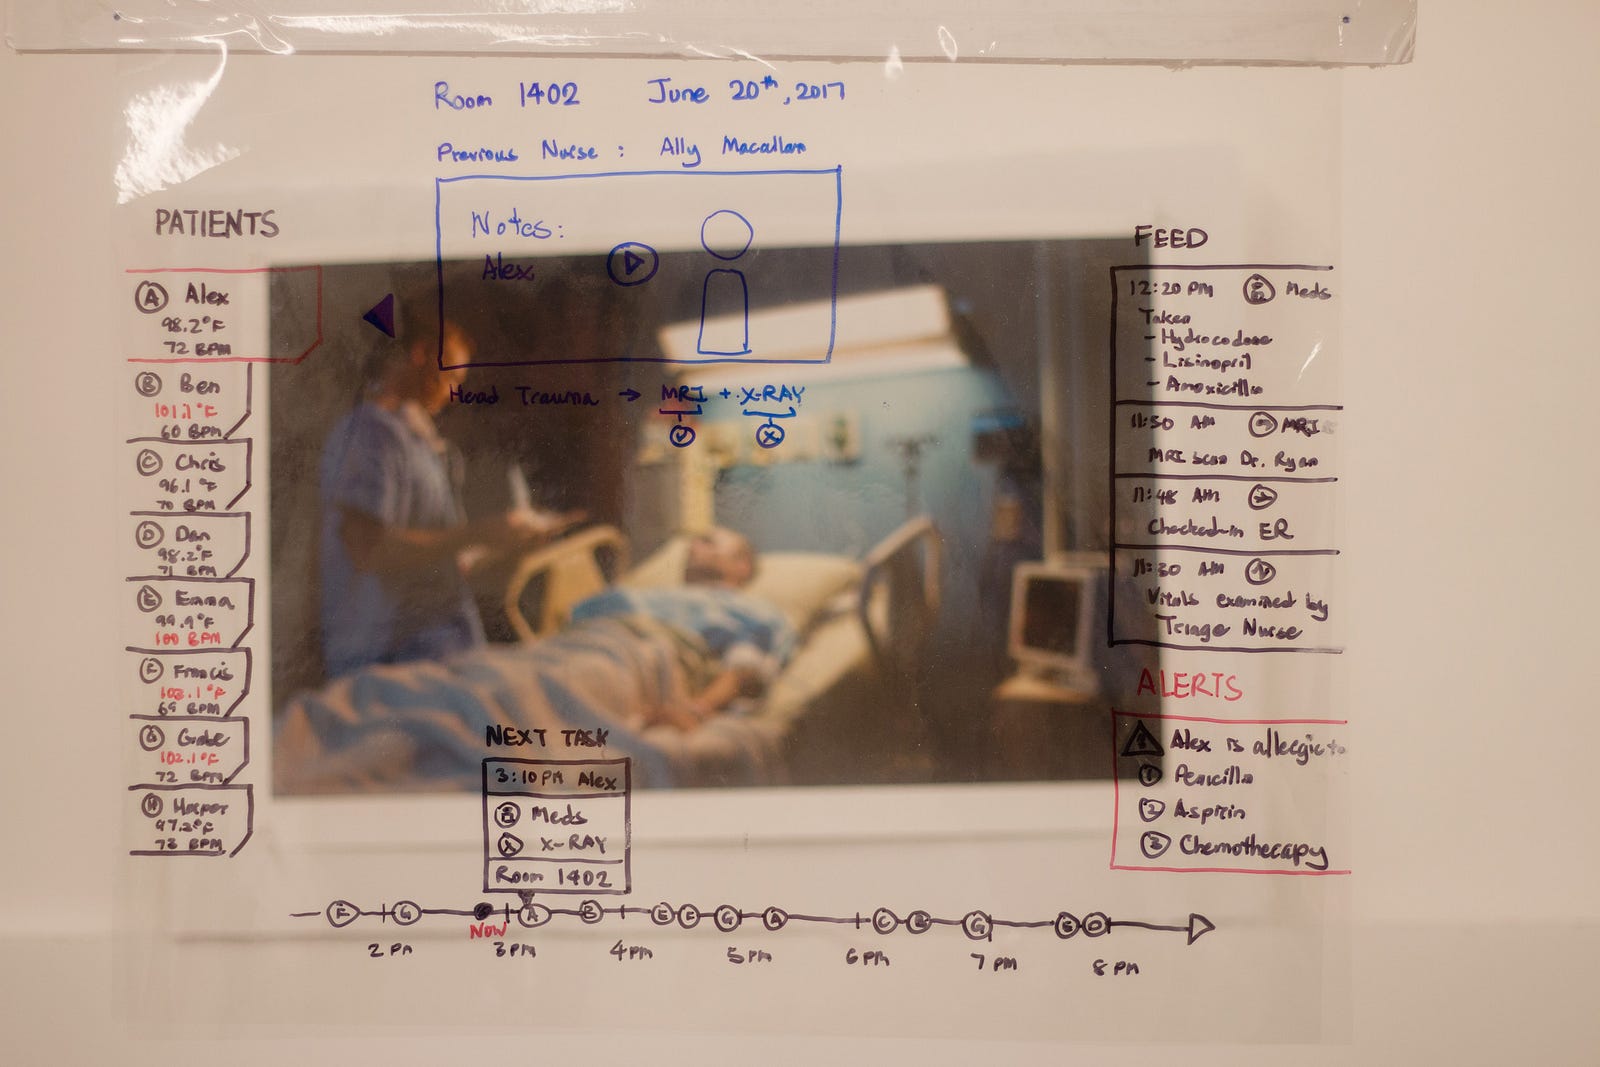 Room 1402 June 20th, 2017
Previous Nurse : Ally Macallan
Notes:
Alex
Head Trauma → MRI + X-RAY
PATIENTS
A Alex
98.2°F
72 BPM
B Ben
101.1°F
60 BPM
C Chris
96.1°F
70 BPM
D Dan
98.2°F
71 BPM
E Emma
99.9°F
100 BPM
F Francis
103.1°F
69 BPM
G Gabe
102.1°F
72 BPM
H Harper
97.2°F
73 BPM
FEED
12:20 PM Meds
Taken
- Hydrocodone
- Lisinopril
- Amoxicillin
11:50 AM MRI
MRI Scan Dr. Ryan
11:48 AM
Checked-in ER
11:30 AM
Vitals examined by
Triage Nurse
ALERTS
! Alex is allergic to
1 Penicillin
2 Aspirin
3 Chemotherapy
NEXT TASK
3:10 PM Alex
Meds
X X-RAY
Room 1402
F G A B E F G A C B G D
NOW
2 PM 3PM 4PM 5PM 6PM 7 PM 8 PM